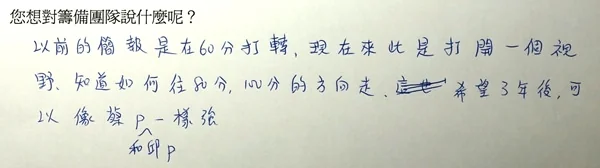 您想對籌備團隊說什麼呢？
以前的簡報是在60分打轉，現在來此是打開一個視
野、知道如何往80分，100分的方向走、希望3年後，可
以像蔡P一樣強
和邱P